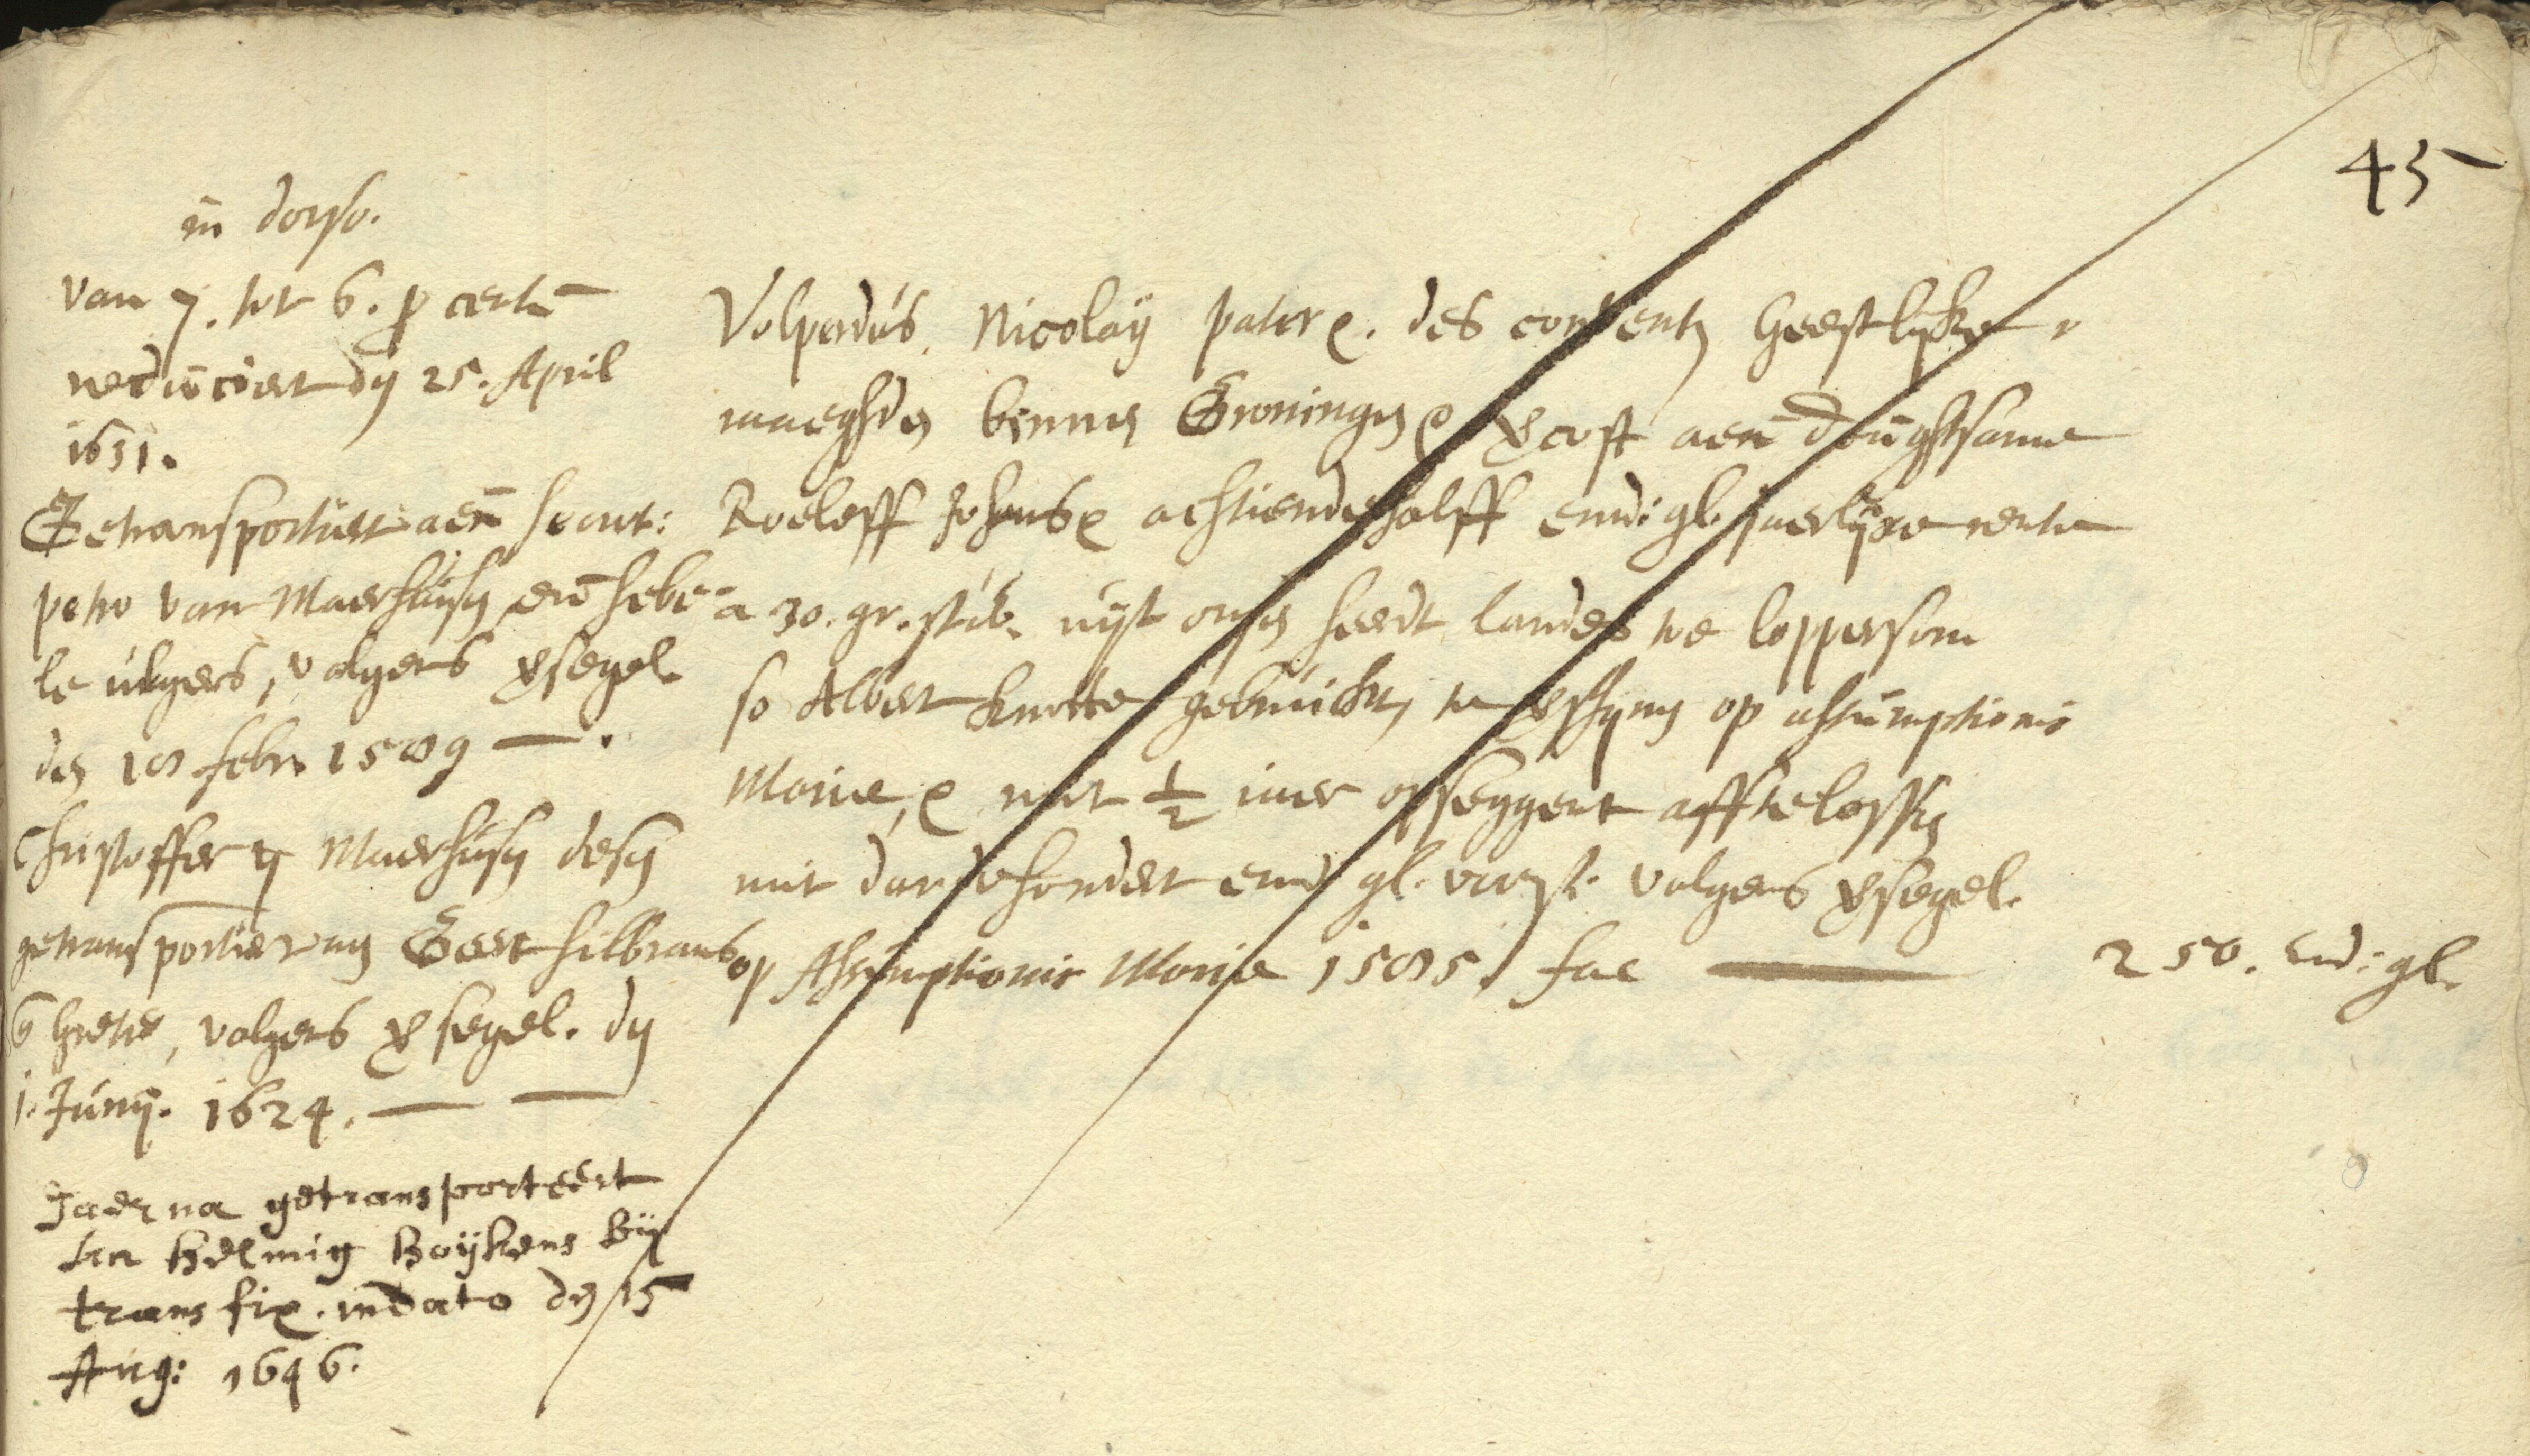 45
in dorso.
van 7. tot 6. p centu
reduciert dn 25. April
1631.
Getransportiert aen secret:
petro van Maerhusen en hebe
le ulgers, volgens vsegel.
den 18 febr. 1589 —.
Christoffer v Maerhusen desen
getransportiert aen Geert hilbrants
Grete, volgens vsegel. dn
1. Junij. 1624. — —
Jaer na getransporteert
an Helmig Boijkens bij
transfix. in dato den 15
Aug: 1646.
Volperdus Nicolaij pater etc. des conventz Geestlijke
maeghden binnen Groningen etc vcoft aen deughtsame
Roeleff Johans etc achtiendehalff emd: gl. jaerlixe rente
a 30. gr. stuk. uijt onsen heerdt landes toe loppersom
so Albert Knotte gebruickt, te vschijnen op assumptionis
Marie, etc met 1/2 jaer opseggent afftelossen
mit dardehondert emd gl. voorst. volgens vsegel.
op Assumptionis Marie 1585. fac —
250. emd: gl.